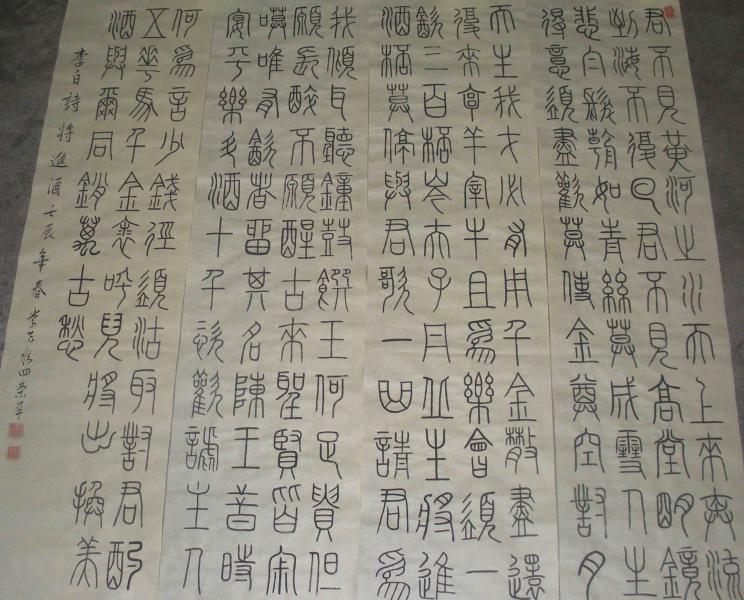 君不見黃河之水天上來奔流
到海不復回君不見高堂明鏡
悲白髮朝如青絲莫成雪人生
得意須盡歡莫使金尊空對月
天生我才必有用千金散盡還
復來烹羊宰牛且為樂會須一
飲三百桮岑夫子丹丘生將進
酒桮莫停與君歌一曲請君為
我傾耳聽鐘鼓饌玉何足貴但
願長醉不願醒古來聖賢皆寂
嗼唯有飲者留其名陳王昔時
宴平樂斗酒十千恣歡謔主人
何為言少錢徑須沽取對君酌
五花馬千金裘呼兒將出換美
酒與爾同銷萬古愁
李白詩將進酒壬辰年春